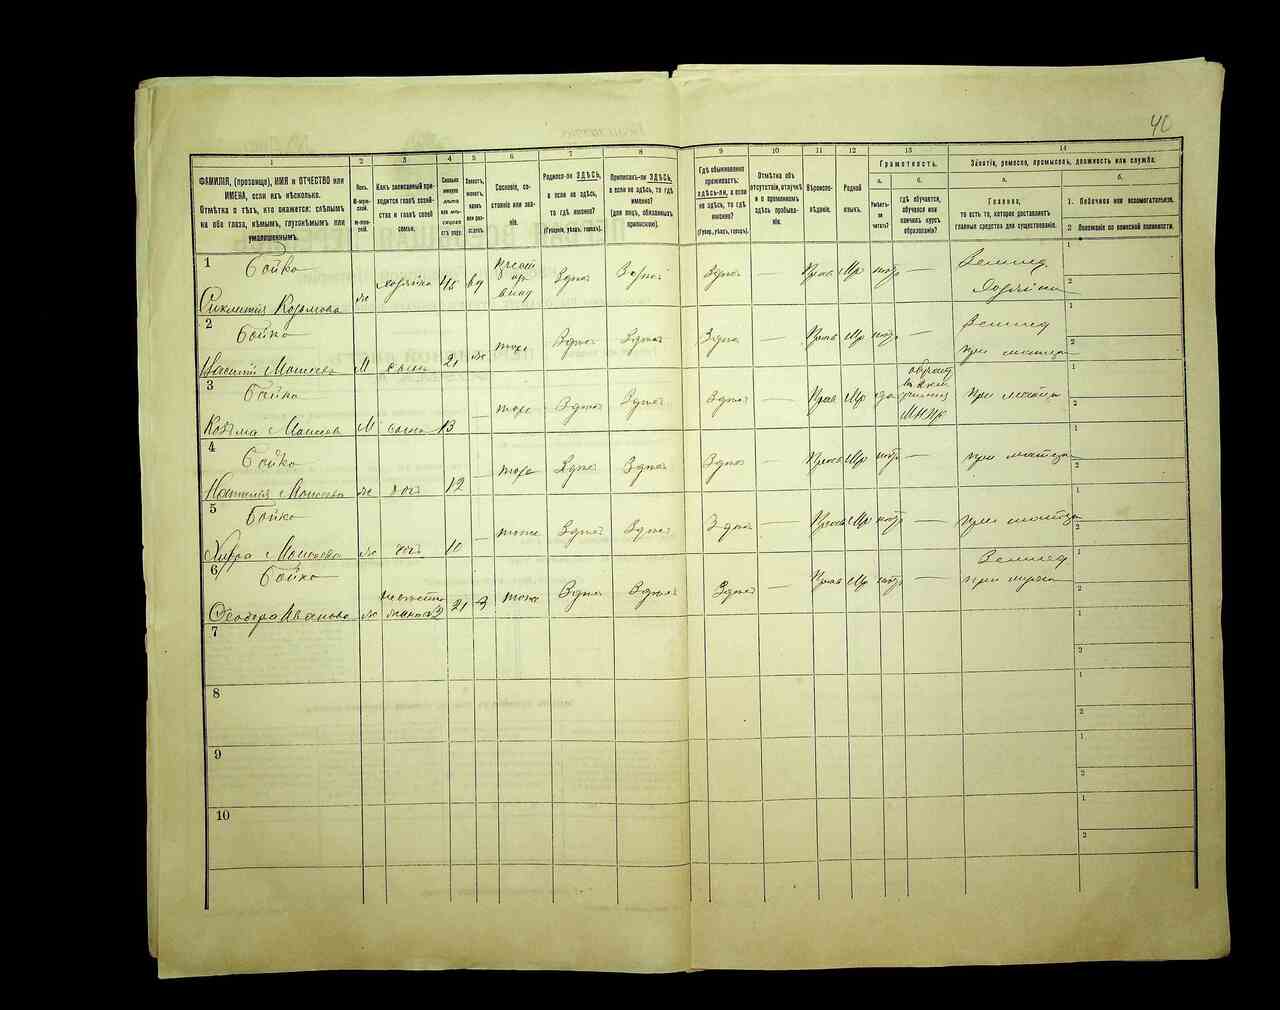 40
1 2 3 4 5 6 7 8 9 10 11 12 13 14
ФАМИЛІЯ, (прозвище), ИМЯ и ОТЧЕСТВО или
ИМЕНА, если ихъ нѣсколько.
Отмѣтка о тѣхъ, кто окажется: слѣпымъ
на оба глаза, нѣмымъ, глухонѣмымъ или
умалишеннымъ.
Полъ.
М-мужской.
Ж-женскій.
Какъ записанный приходится
главѣ хозяйства и главѣ своей
семьи.
Сколько
минуло
лѣтъ
или мѣсяцевъ
отъ роду.
Холостъ,
женатъ,
вдовъ
или разведенъ.
Сословіе, состояніе
или званіе.
Родился-ли ЗДѢСЬ,
а если не здѣсь,
то гдѣ именно?
(Губернія, уѣздъ, городъ).
Приписанъ-ли ЗДѢСЬ,
а если не здѣсь, то гдѣ
именно?
(для лицъ, обязанныхъ
припискою).
Гдѣ обыкновенно
проживаетъ:
здѣсь-ли, а если
не здѣсь, то гдѣ
именно?
(Губерн., уѣздъ, городъ).
Отмѣтка объ
отсутствіи, отлучкѣ
и о временномъ
здѣсь пребываніи.
Вѣроисповѣданіе.
Родной
языкъ.
Грамотность.
а.
Умѣетъ-ли
читать?
б.
гдѣ обучается,
обучался или
кончилъ курсъ
образованія?
Занятіе, ремесло, промыселъ, должность или служба.
а.
Главное,
то есть то, которое доставляетъ
главныя средства для существованія.
б.
1. Побочное или вспомогательное.
2 Положеніе по воинской повинности.
1 Бойко
Козьмова ж хозяйка 45 вд Здѣсь Здѣсь Здѣсь — Прав Мр нѣтъ — Землед.
Хозяйка
2 Бойко
Василій Моисеевъ М сынъ 21 тоже Здѣсь Здѣсь Здѣсь — Прав Мр нѣтъ — Землед
при матери
3 Бойко
Козьма Моисеевъ М сынъ 13 — тоже Здѣсь Здѣсь Здѣсь — Прав Мр да при матери
4 Бойко
Наталія Моисеева ж дочь 12 — тоже Здѣсь Здѣсь Здѣсь — Прав Мр нѣтъ — при матери
5 Бойко
Моисеева ж дочь 10 — тоже Здѣсь Здѣсь Здѣсь — Прав Мр нѣтъ — при матери
6 Бойко
Ѳеодора Иванова ж невѣстка 21 З тоже Здѣсь Здѣсь Здѣсь — Прав Мр нѣтъ — Землед
при мужѣ
7
8
9
10